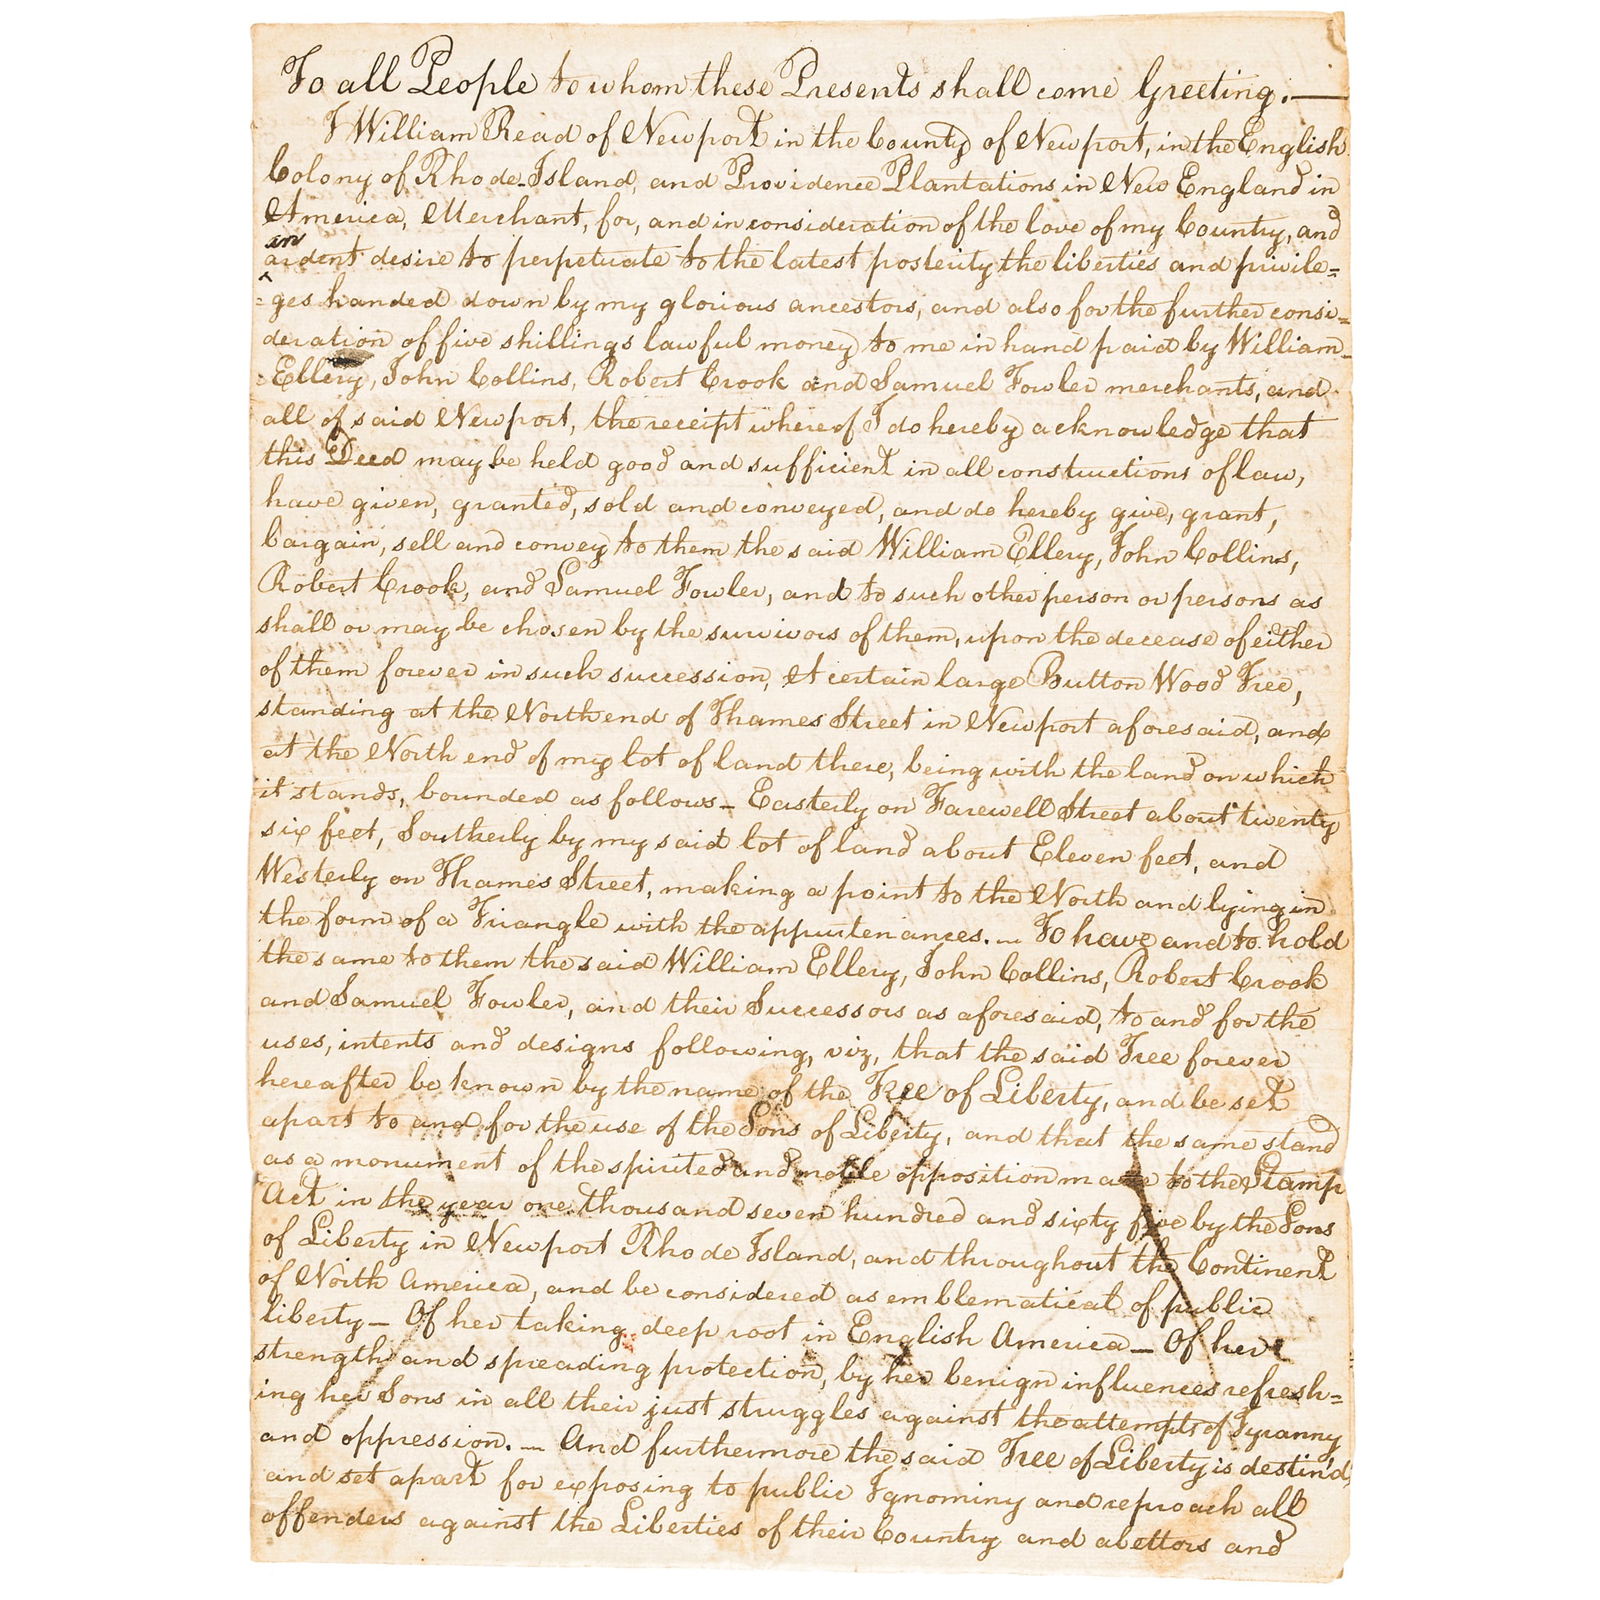 To all People to whom these Presents shall come Greeting.—
I William Read of Newport in the County of Newport, in the English
Colony of Rhode-Island, and Providence Plantations in New England in
America, Merchant, for, and in consideration of the love of my Country, and
an
ardent desire to perpetuate to the latest posterity the liberties and privile=
=ges handed down by my glorious ancestors, and also for the further consi=
deration of five shillings lawful money to me in hand paid by William
Ellery, John Collins, Robert Crook and Samuel Fowler merchants, and
all of said Newport, the receipt whereof I do hereby acknowledge that
this Deed may be held good and sufficient in all constructions of law,
have given, granted, sold and conveyed, and do hereby give, grant,
bargain, sell and convey to them the said William Ellery, John Collins,
Robert Crook, and Samuel Fowler, and to such other person or persons as
shall or may be chosen by the survivors of them, upon the decease of either
of them forever in such succession, A certain large Button Wood Tree,
standing at the North end of Thames Street in Newport aforesaid, and
at the North end of my lot of land there, being with the land on which
it stands, bounded as follows— Easterly on Farewell Street about twenty
six feet, Southerly by my said lot of land about Eleven feet, and
Westerly on Thames Street, making a point to the North and lying in
the form of a Triangle with the appurtenances. — To have and to hold
the same to them the said William Ellery, John Collins, Robert Crook
and Samuel Fowler, and their Successors as aforesaid, to and for the
uses, intents and designs following, viz, that the said Tree forever
hereafter be known by the name of the Tree of Liberty, and be set
apart to and for the use of the Sons of Liberty, and that the same stand
as a monument of the spirited and noble opposition made to the Stamp
Act in the year one thousand seven hundred and sixty five by the Sons
of Liberty in Newport Rhode Island, and throughout the Continent
of North America, and be considered as emblematical of public
liberty— Of her taking deep root in English America— Of her
strength and spreading protection, by her benign influences refresh=
ing her Sons in all their just struggles against the attempts of Tyranny
and oppression. — And furthermore the said Tree of Liberty is destin'd,
and set apart for exposing to public Ignominy and reproach all
offenders against the Liberties of their Country and abettors and